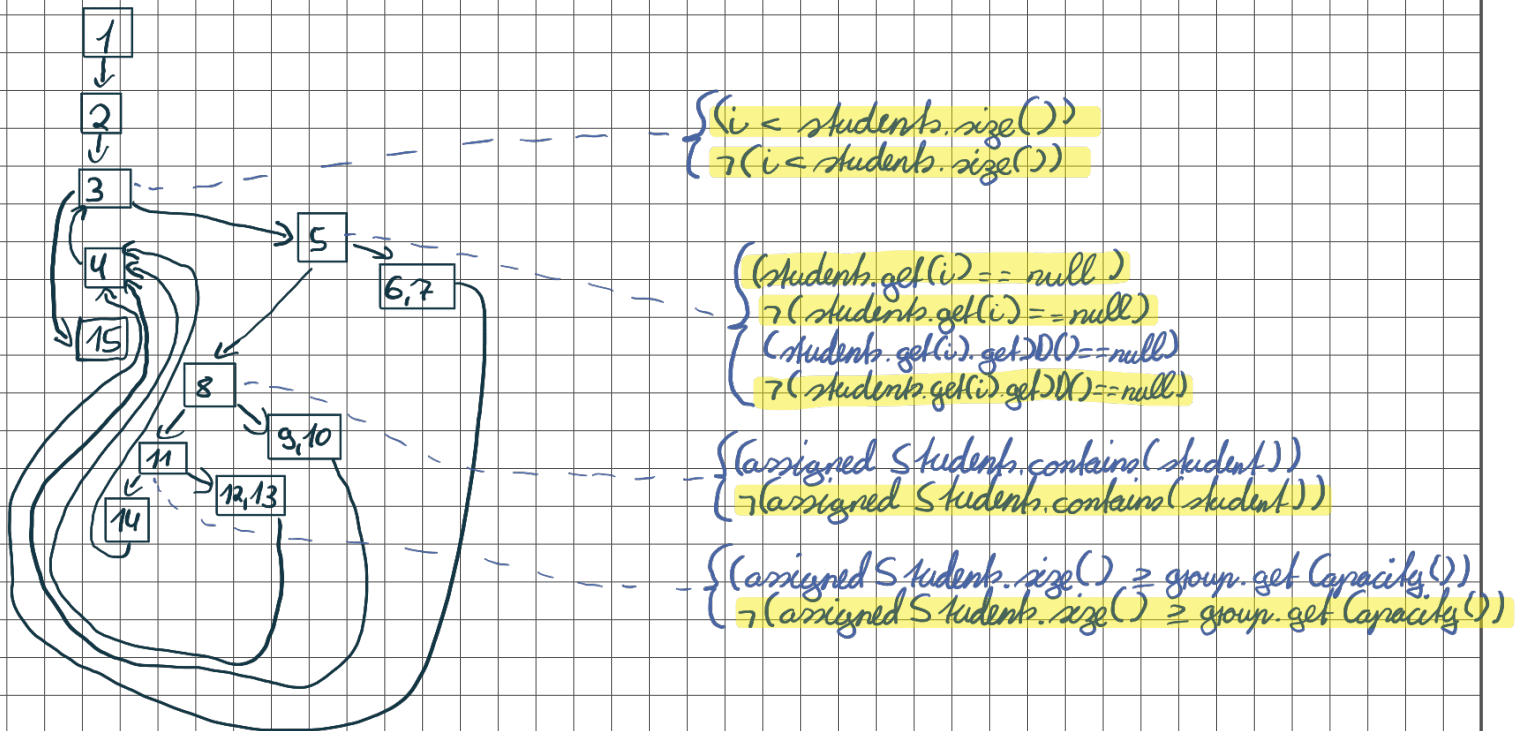 1
2
(i < students.size())
¬(i < students.size())
3
5
4
6,7
(students.get(i) == null )
¬(students.get(i) == null)
(students.get(i).getID()==null)
¬(students.get(i).getID()==null)
15
8
9,10
(assigned Students.contains(student))
¬(assigned Students.contains(student))
11
12,13
14
(assigned Students.size() ≥ group.get Capacity())
¬(assigned Students.size() ≥ group.get Capacity())